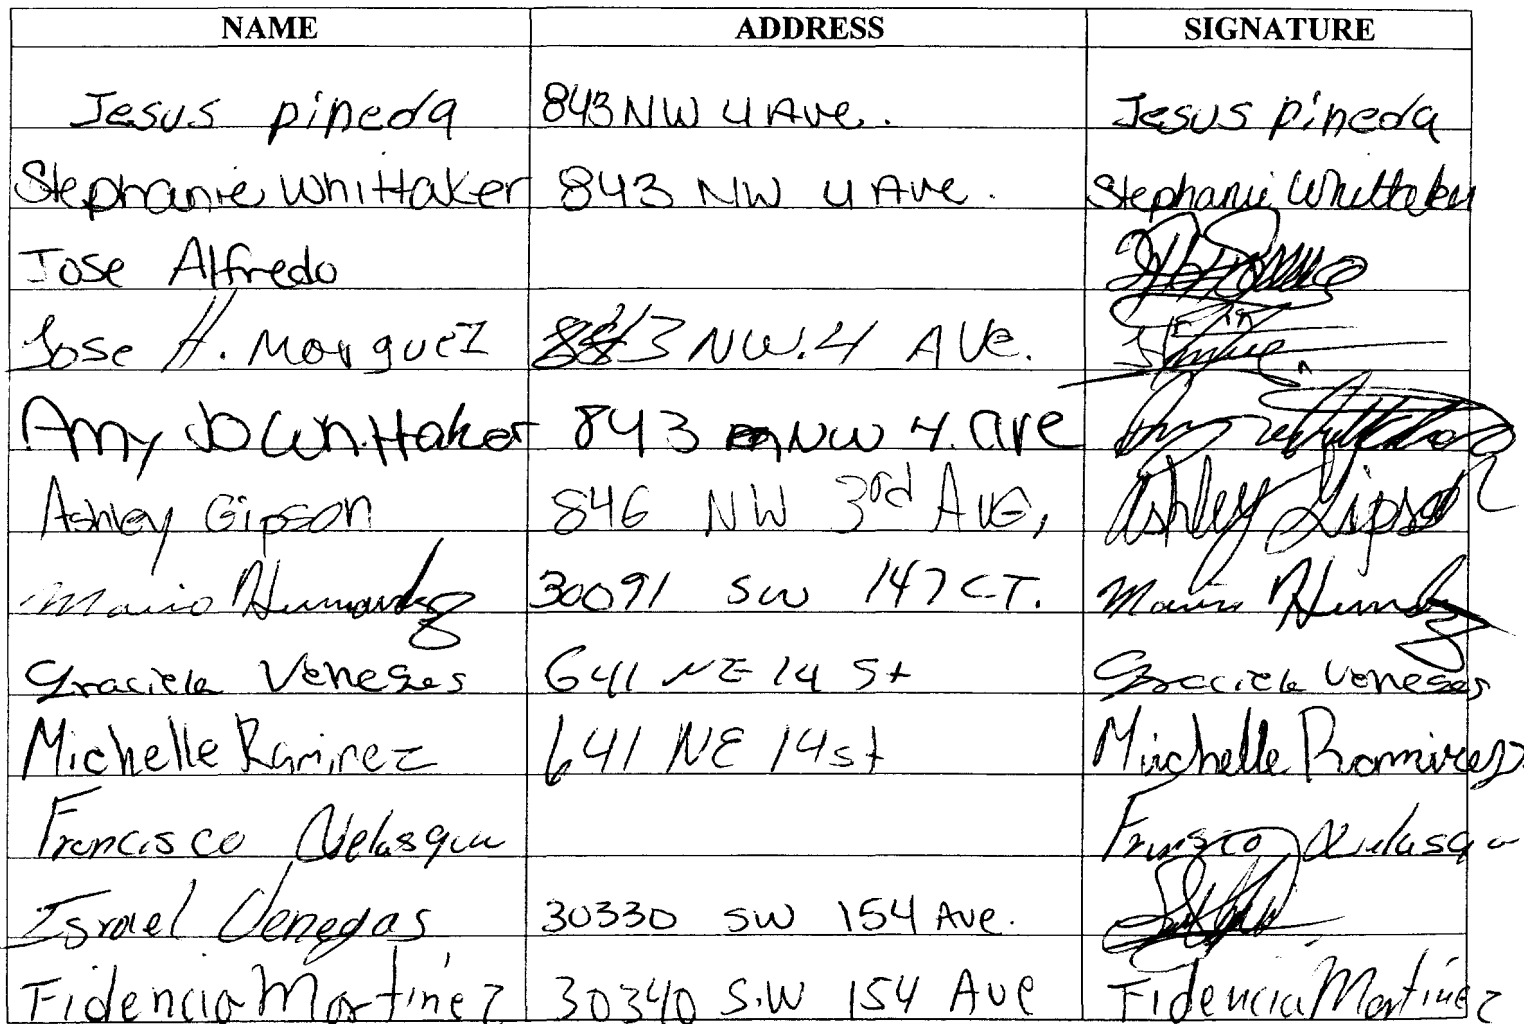 NAME ADDRESS SIGNATURE
Jesus pineda 843 NW 4 Ave. Jesus pineda
Stephanie Whittaker 843 NW 4 Ave. Stephanie Whittaker
Jose Alfredo
Jose H. Marquez 843 NW. 4 AVE.
Amy Jo Whittaker 843 NW 4. ave Amy Whittaker
Ashley Gipson 846 NW 3rd AVE, Ashley Gipson
Mario Hernandez 30091 SW 147 CT. Mario
Graciela Venegas 641 NE 14 St Graciela Venegas
Michelle Ramirez 641 NE 14 st Michelle Ramirez
Francisco
Israel Venegas 30330 SW 154 Ave.
Fidencia Martinez 30340 S.W 154 Ave Fidencia Martinez